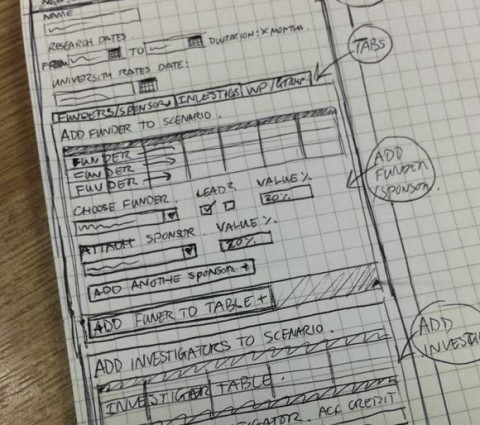 NAME
RESEARCH DATES
FROM TO DURATION: X MONTHS
UNIVERSITY RATES DATE:
TABS
FUNDERS/SPONSOR INVESTIGS WP/
ADD FUNDER TO SCENARIO.
FUNDER
FUNDER
FUNDER
ADD FUNDER /SPONSOR.
CHOOSE FUNDER LEAD? VALUE %
20%
ATTACH SPONSOR VALUE %.
20%
ADD ANOTHE SPONSOR +
ADD FUNER TO TABLE +
ADD INVESTIGATORS TO SCENARIO.
ADD INVESTI
INVESTIGAR TABLE.
IGATOR. ACC CREDIT